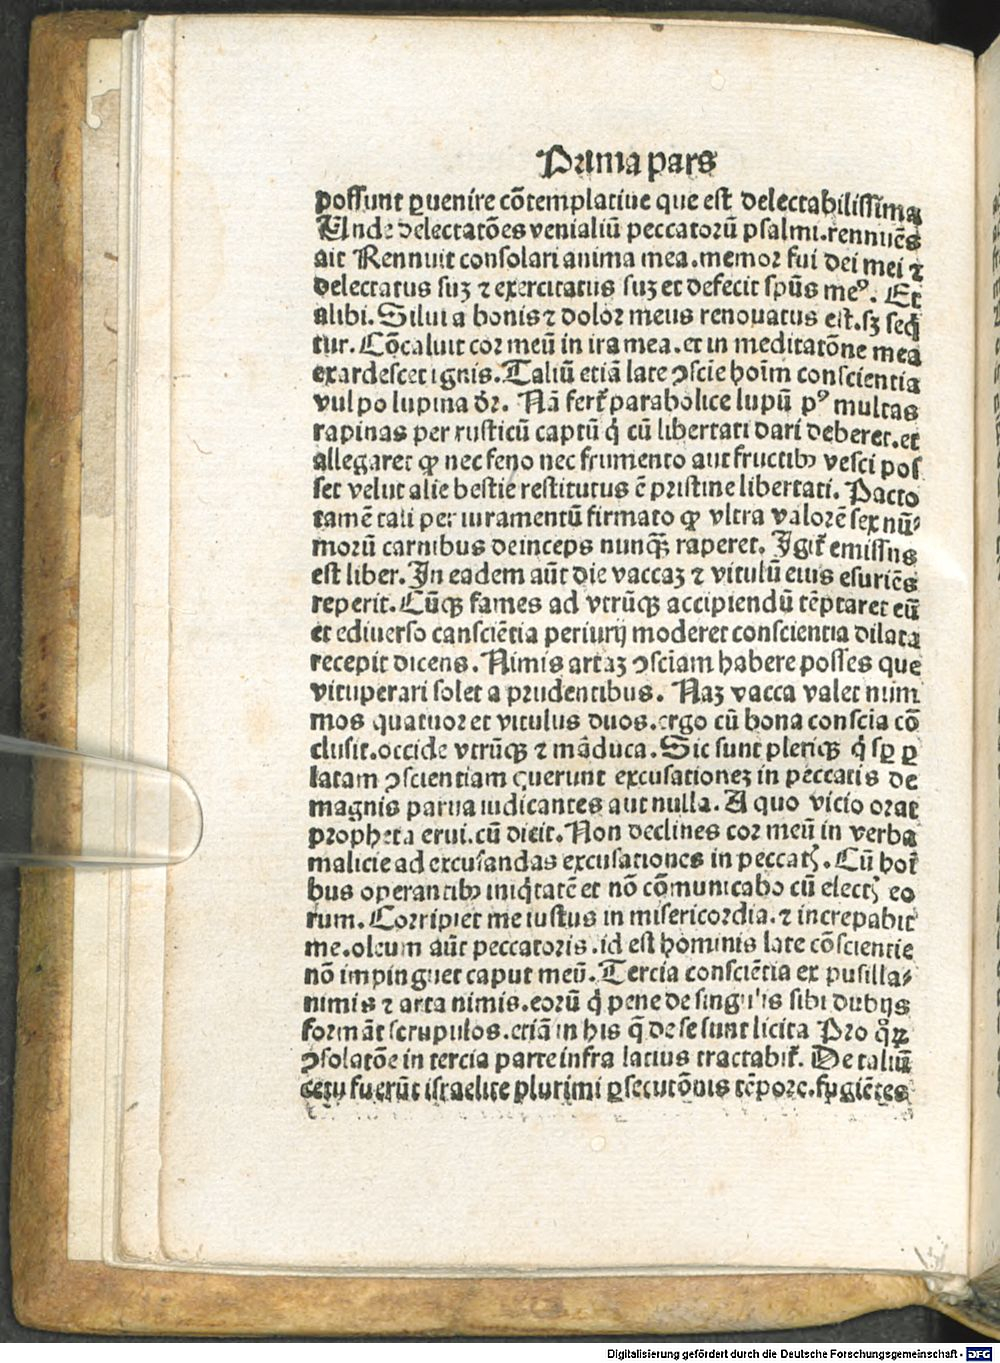 Prima pars
possunt ꝑuenire cōtemplatiue que est delectabilissima
Unde delectatōes venialiū peccatorū psalmi.rennuēs
ait Rennuit consolari anima mea.memor fui dei mei ⁊
delectatus suꝫ ⁊ exercitatus suꝫ et defecit spūs meꝰ. Et
alibi. Silui a bonis ⁊ dolor meus renouatus est.sꝫ seq̄
tur. Cōcaluit cor meū in ira mea.et in meditatōne mea
exardescet ignis. Taliū etiā late ↄscie hoīm conscientia
vulpo lupina dr̄. Nā fert᷑ parabolice lupū pꝰ multas
rapinas per rusticū captū q̇ cū libertati dari deberet.et
allegaret ꝙ nec feno nec frumento aut fructibꝫ vesci pos
set velut alie bestie restitutus ē pristine libertati. Pacto
tamē tali per iuramentū firmato ꝙ vltra valorē sex nū⸗
morū carnibus deinceps nunqꝫ̄ raperet. Igit᷑ emissus
est liber. In eadem aūt die vaccaꝫ ⁊ vitulū eius esuriēs
reperit. Cūqꝫ fames ad vtrūqꝫ accipiendū tēptaret eū
et ediuerso cansciētia periurij moderet conscientia dilata
recepit dicens. Nimis artaꝫ ↄsciam habere posses que
vituperari solet a prudentibus. Naꝫ vacca valet num
mos quatuor et vitulus duos.ergo cū bona conscia cō
clusit.occide vtrūqꝫ ⁊ māduca. Sic sunt pleriqꝫ q̇ sꝑ ꝑ
latam ↄscientiam querunt excusationeꝫ in peccatis de
magnis parua iudicantes aut nulla. A quo vicio orat
propheta erui.cū dicit. Non declines cor meū in verba
malicie ad excusandas excusationes in peccatꝭ. Cū hoī
bus operantibꝫ iniq̇tatē et nō cōmunicabo cū electꝭ eo
rum. Corripiet me iustus in misericordia.⁊ increpabit
me.oleum aūt peccatoris.id est hominis late cōscientie
nō impinguet caput meū. Tercia consciētia ex pusilla⸗
nimis ⁊ arta nimis.eorū q̇ pene de singulis sibi dubijs
formāt scrupulos.etiā in his q̄ de se sunt licita Pro q̊ꝝ
ↄsolatōe in tercia parte infra latius tractabit᷑. De taliū
cetu fuerūt israelite plurimi ꝑsecutōnis tēpore.fugiētes
Digitalisierung gefördert durch die Deutsche Forschungsgemeinschaft - DFG